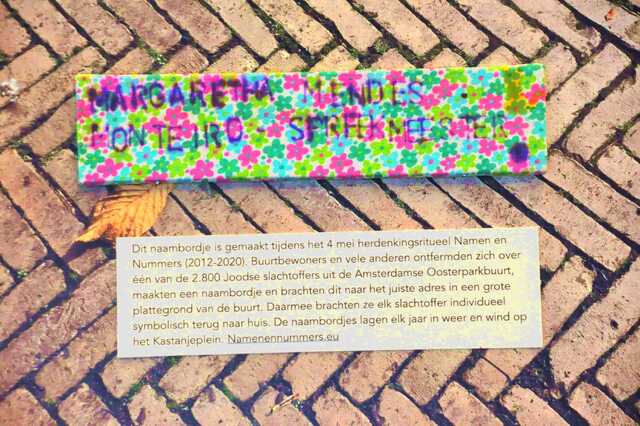 MARGARETHA MENDES -
MONTEIRO - SPREEKMEESTER
Dit naambordje is gemaakt tijdens het 4 mei herdenkingsritueel Namen en
Nummers (2012-2020). Buurtbewoners en vele anderen ontfermden zich over
één van de 2.800 Joodse slachtoffers uit de Amsterdamse Oosterparkbuurt,
maakten een naambordje en brachten dit naar het juiste adres in een grote
plattegrond van de buurt. Daarmee brachten ze elk slachtoffer individueel
symbolisch terug naar huis. De naambordjes lagen elk jaar in weer en wind op
het Kastanjeplein. Namenennummers.eu